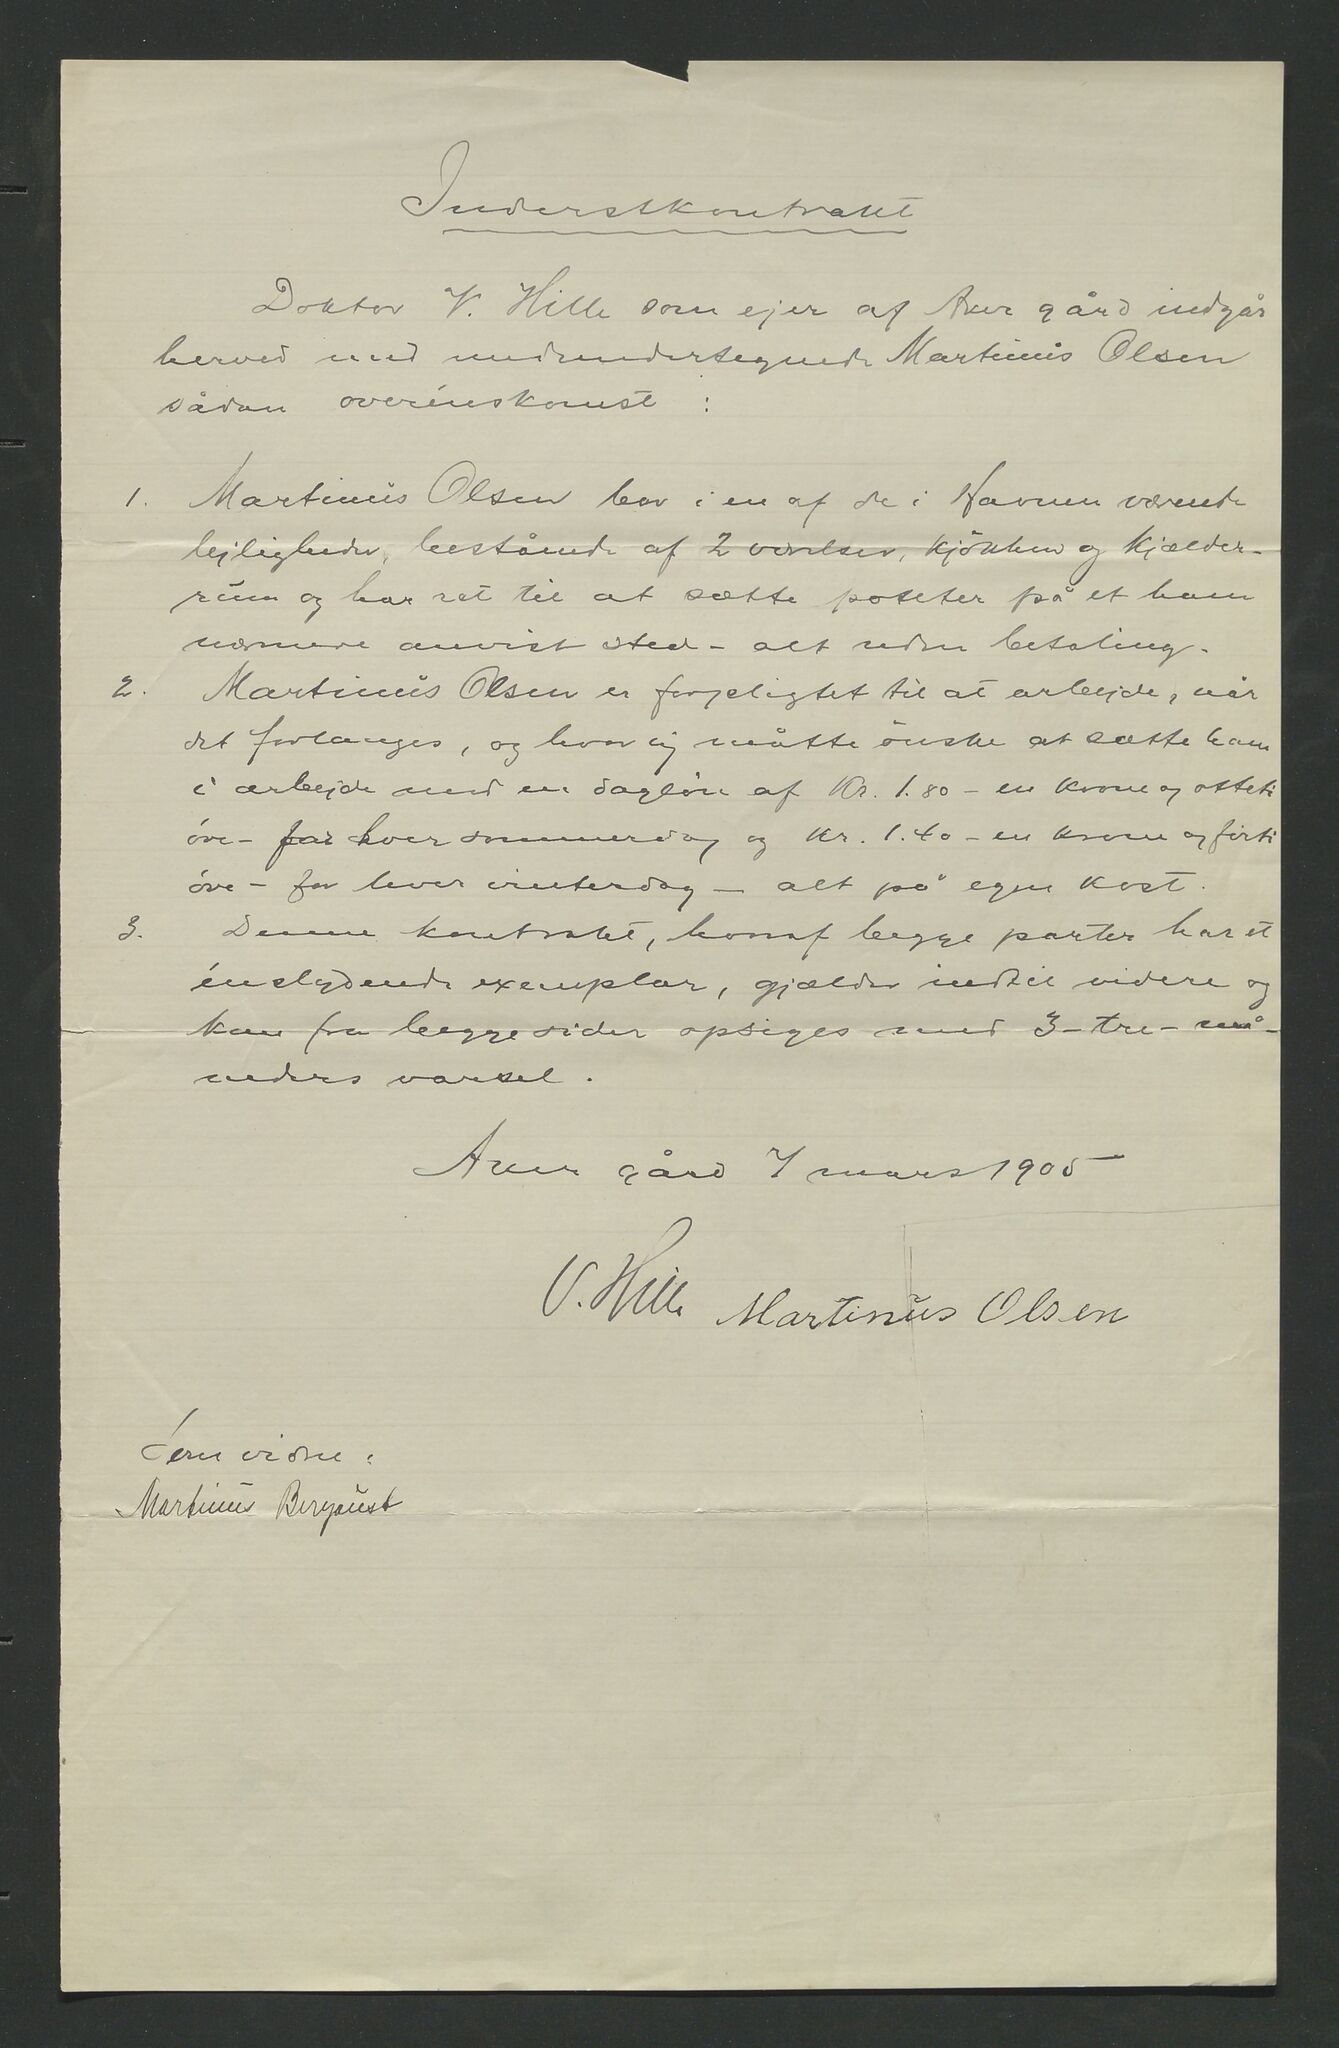 Inderstkontrakt
Doktor V. Hille som ejer af Aker gård indgår
herved med medundertegnede Martinus Olsen
sådan overénskomst :
1. Martinus Olsen bor i en af de i Havnen værende
lejligheder, bestående af 2 værelser, kjökken og kjælder-
rum og har ret til at sætte poteter på et ham
nærmere anvist sted – alt uden betaling.
2. Martinus Olsen er forpligtet til at arbejde, når
det forlanges, og hvor jeg måtte önske at sætte ham
i arbejde med en daglön af Kr. 1.80 – en krone og otteti
öre – for hver sommerdag og Kr. 1.40 – en krone og förti
öre – for hver vinterdag – alt på egen kost.
3. Denne kontrakt, hvoraf begge parter har et
énslydende exemplar, gjælder indtil videre og
kan fra begge sider opsiges med 3 – tre – må-
neders varsel.
Aker gård 7 mars 1905
V. Hille Martinus Olsen
Som vidne :
Martinus Bergqust